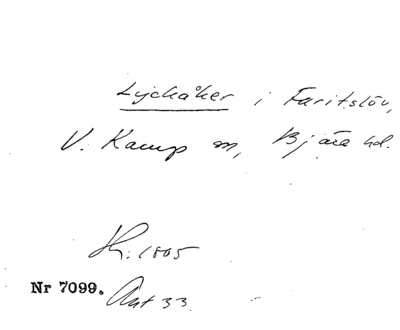 Lyckåker i Faritslöv,
V. Karup sn, Bjäre hd.
Sk. 1805
Nr 7099. Ant 33